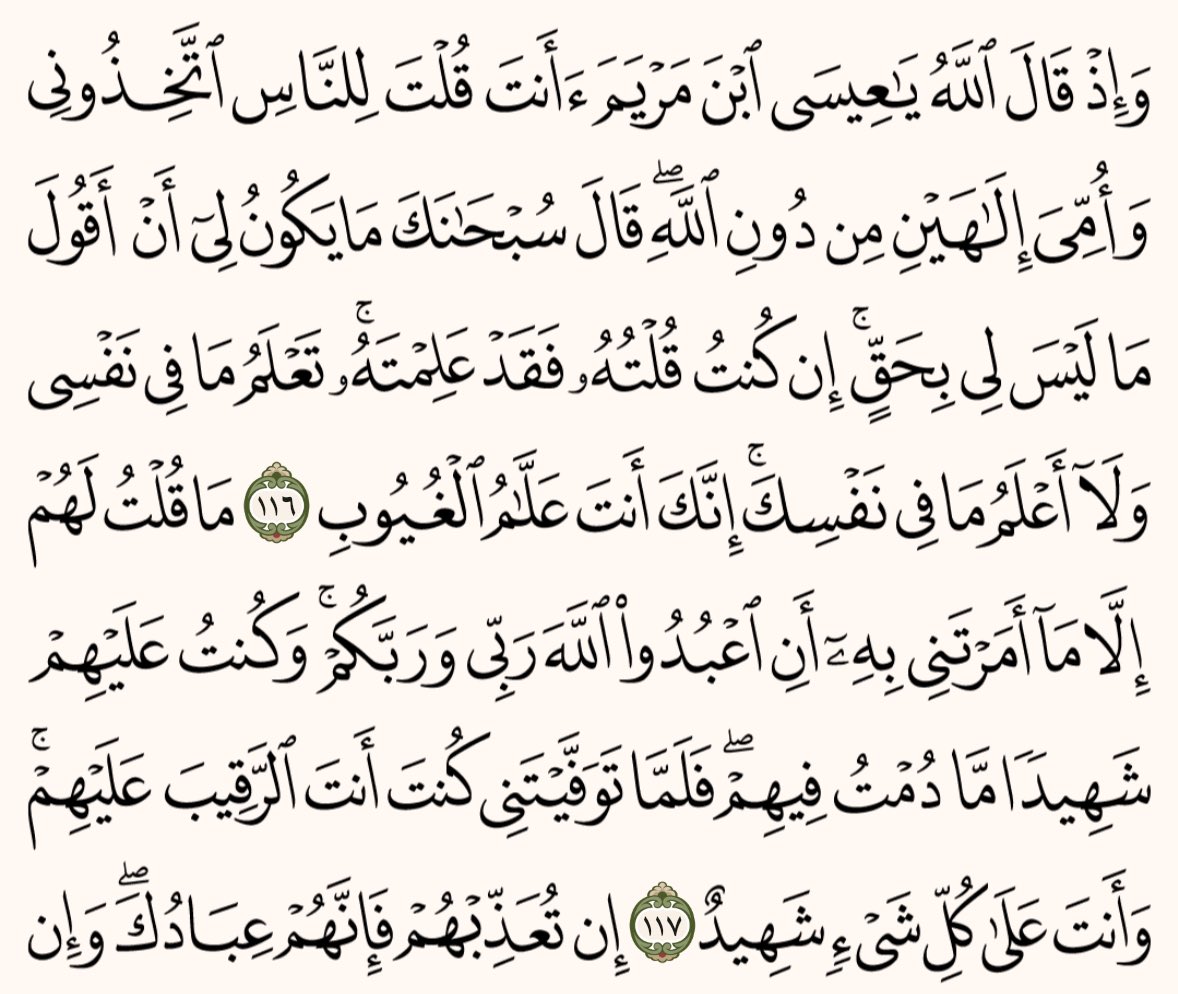 وَإِذۡ قَالَ ٱللَّهُ يَٰعِيسَى ٱبۡنَ مَرۡيَمَ ءَأَنتَ قُلۡتَ لِلنَّاسِ ٱتَّخِذُونِي
وَأُمِّيَ إِلَٰهَيۡنِ مِن دُونِ ٱللَّهِۖ قَالَ سُبۡحَٰنَكَ مَا يَكُونُ لِيٓ أَنۡ أَقُولَ
مَا لَيۡسَ لِي بِحَقٍّۚ إِن كُنتُ قُلۡتُهُۥ فَقَدۡ عَلِمۡتَهُۥۚ تَعۡلَمُ مَا فِي نَفۡسِي
وَلَآ أَعۡلَمُ مَا فِي نَفۡسِكَۚ إِنَّكَ أَنتَ عَلَّٰمُ ٱلۡغُيُوبِ ١١٦ مَا قُلۡتُ لَهُمۡ
إِلَّا مَآ أَمَرۡتَنِي بِهِۦٓ أَنِ ٱعۡبُدُواْ ٱللَّهَ رَبِّي وَرَبَّكُمۡۚ وَكُنتُ عَلَيۡهِمۡ
شَهِيدٗا مَّا دُمۡتُ فِيهِمۡۖ فَلَمَّا تَوَفَّيۡتَنِي كُنتَ أَنتَ ٱلرَّقِيبَ عَلَيۡهِمۡۚ
وَأَنتَ عَلَىٰ كُلِّ شَيۡءٖ شَهِيدٌ ١١٧ إِن تُعَذِّبۡهُمۡ فَإِنَّهُمۡ عِبَادُكَۖ وَإِن